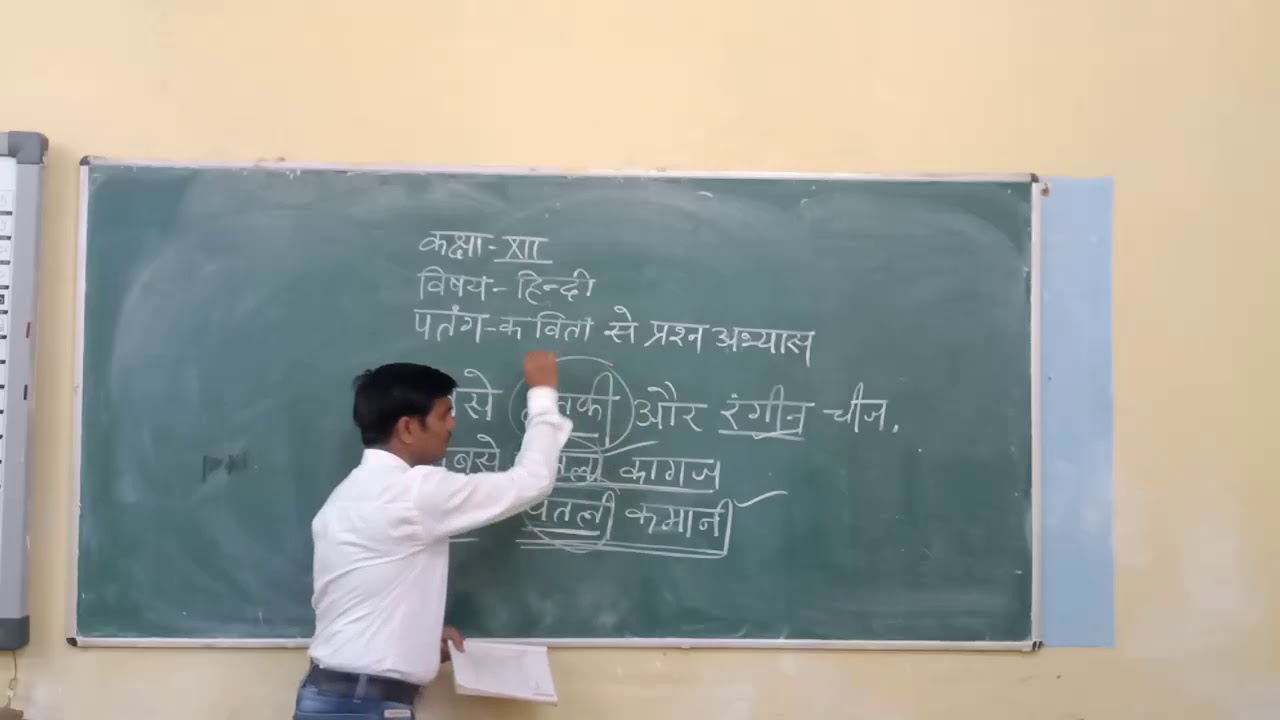 कक्षा - XII
विषय - हिन्दी
पतंग - कविता से प्रश्न अभ्यास
और रंगीन चीज.
कागज
पतली कमानी